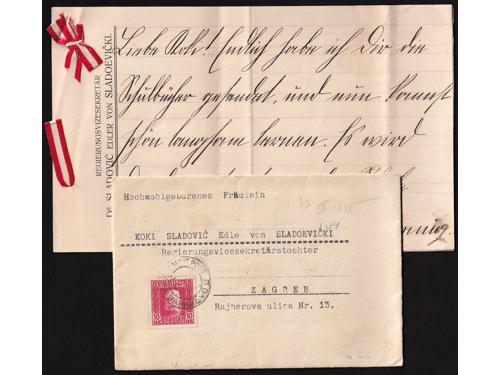 REGIERUNGSVIZESEKRETÄR
DR SLADOVIĆ EDLER VON SLADOEVIĆKI.
Liebe Koki! Endlich habe ich Dir die
Schulbücher gesendet, und nun kannst
schön langsam lernen. Es wird
Hochwohlgeborenes Fräulein
KOKI SLADOVIĆ Edle von SLADOEVIČKI
Regierungsvicesekretärstochter
ZAGREB
Rajnerova ulica Nr. 13.